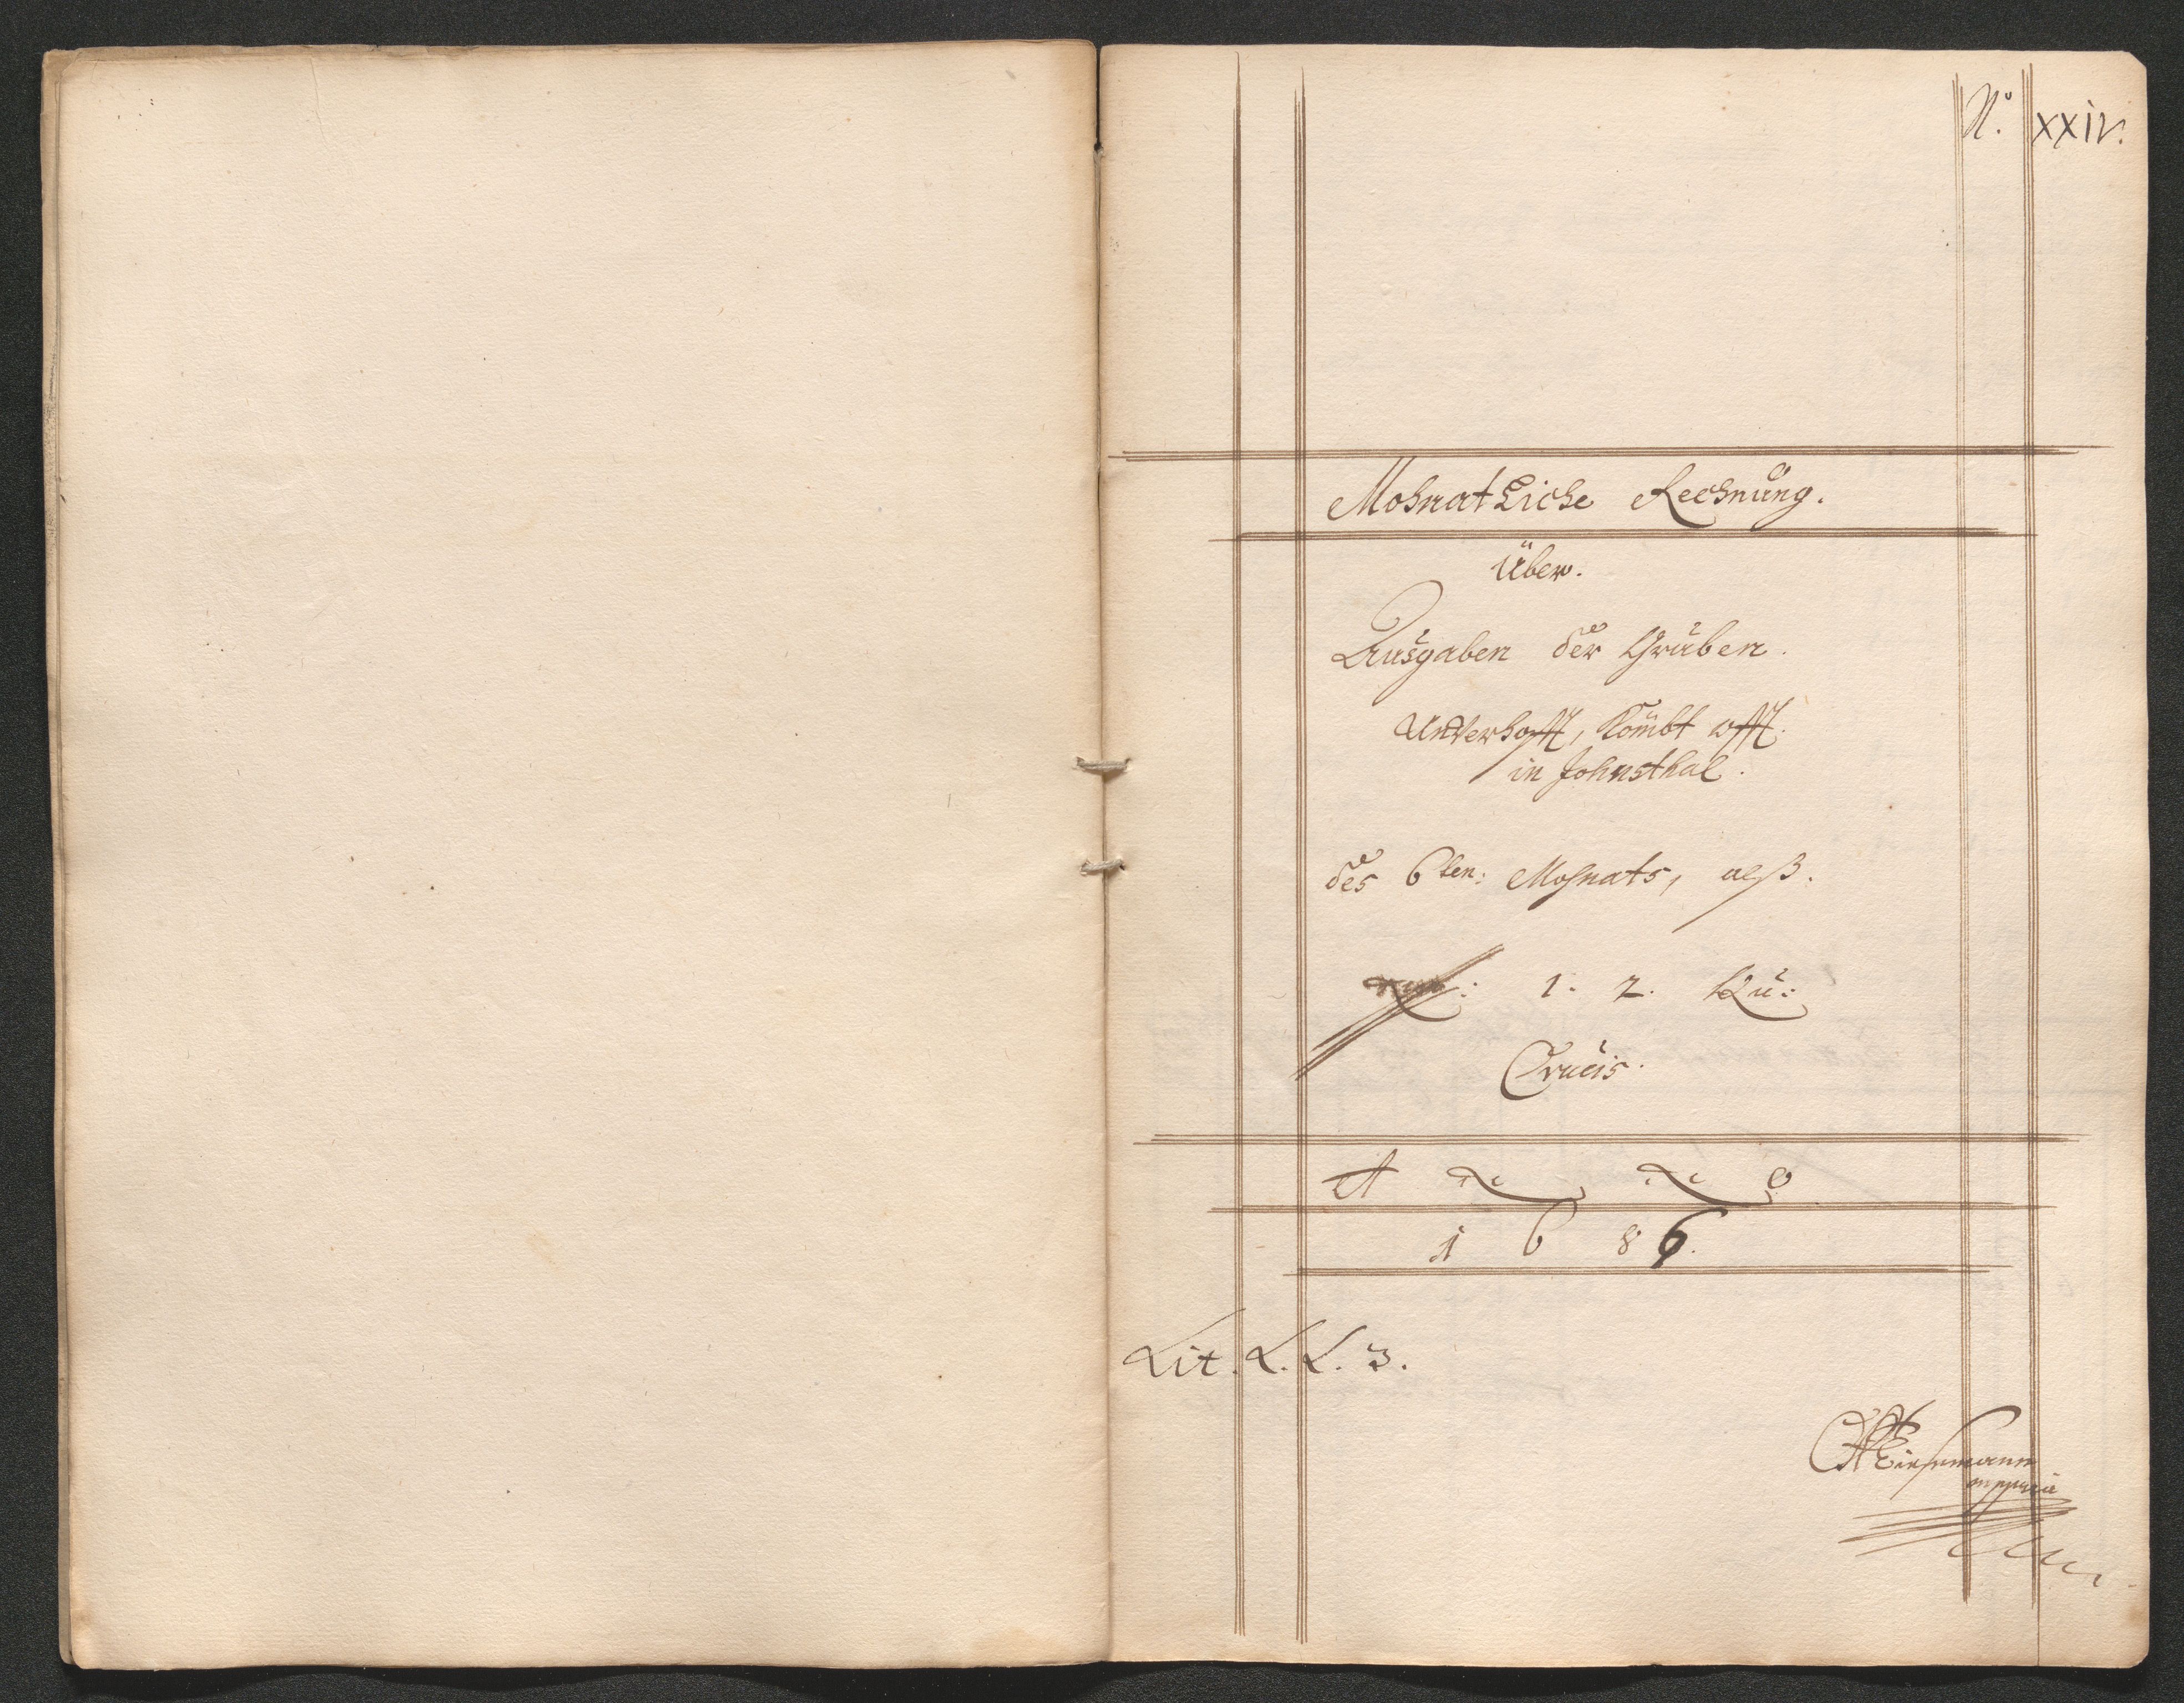 No. xxiv.
MohnatLiche Rechnung.
Über.
Ausgaben der Gruben.
Unverhofft, Kombt offt.
in Johnsthal.
des 6ten: Mohnats, alß.
1. 2. Qu:
Crucis.
A N N O
1 6 8 6.
Lit. L. L. 3.
mppria